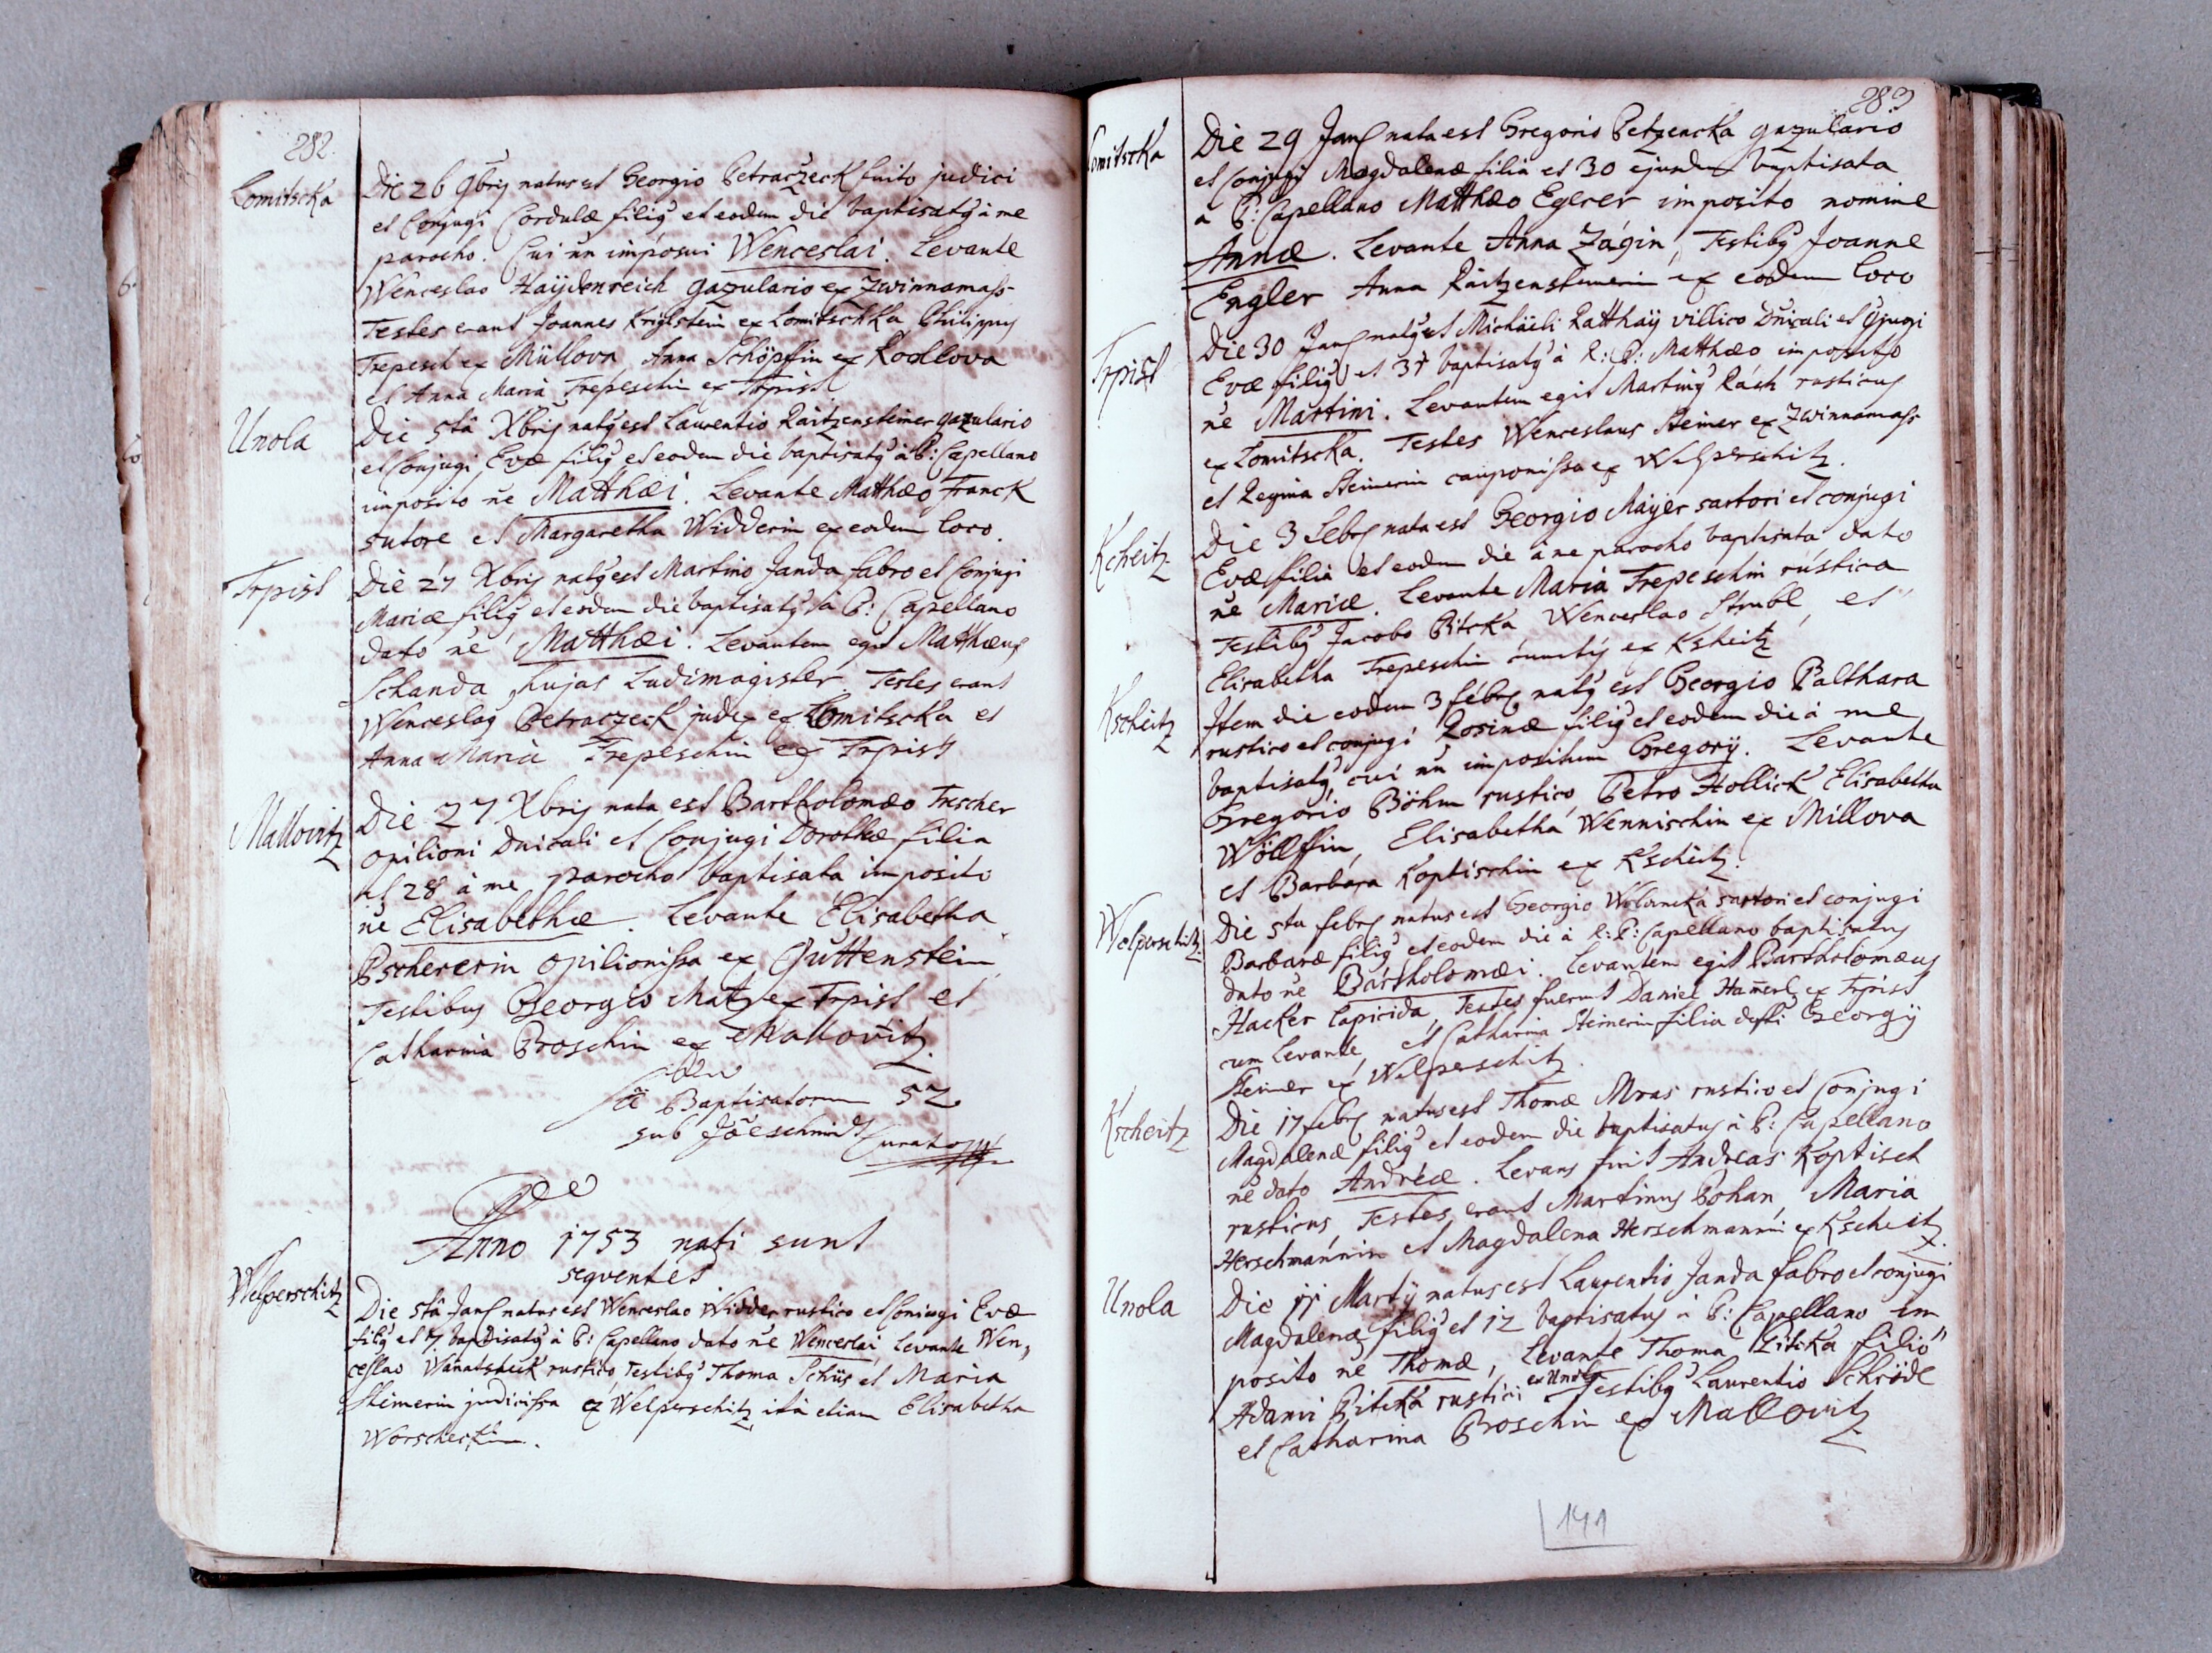 282.
Lomitscka
Die 26 9bris natus est Georgio Petraczeck fuito judici
et Conjugi Cordulæ filiq et eodem die baptisatq à me
parocho. Cui nn imposui Wenceslai. Levante
Wenceslao Haÿdenreich gazulario ex Zwinnamass
Testes erant Joannes Kriglstein ex Lomitschka Philippus
Trepesch ex Müllova Anna Schöpffin ex Kodlova
et Anna Maria Trepeschin ex Trpist.
Unola
Die 5tâ Xbris natq est Laurentio Räitzensteiner gazulario
et Conjugi Evæ filiq et eodem die baptisatq à P: Capellano
imposito ne Matthæi. Levante Matthæo Franck
sutore et Margaretha Widderin ex eodem loco.
Trpist
Die 27 Xbris natq est Martino Janda fabro et Conjugi
Mariæ filiq et eodem die baptisatq à P: Capellano
dato ne Matthæi. Levantem egit Matthæus
Schanda hujas Ludimagister Testes erant
Wenceslaq Petraczeck judex ex Lomitscka et
Anna Maria Trepeschin ex Trpist
Mallovitz
Die 27 Xbris nata est Bartholomæo Trescher
opilioni Dnicali et Conjugi Dorotheæ filia
et 28 à me parocho baptisata imposito
ne Elisabethæ. Levante Elisabetha
Pschererin opilionissa ex Guttenstein
Testibus Georgio Matz ex Trpist et
Catharina Proschin ex Mallovitz.
Baptisatorum 52
sub Joe Schmidt Curato
Anno 1753 nati sunt
seqventes
Welperschitz
Die 5tâ Jan natus est Wenceslao Widder rustico et Conjugi Evæ
filiq et 7 baptisatq à P: Capellano dato ne Wenceslai, Levante Wen,
ceslao Wanatscheck rustico, Testibq Thoma Schüs et Maria
Steinerin judicissa ex Welperschitz, ità etiam Elisabetha
Worscheckin.
283
Lomitscka
Die 29 Jan nata est Gregorio Petzencka gazulario
et Conjugi Magdalenæ filia et 30 ejusdem baptisata
a P: Capellano Matthæo Egerer imposito nomine
Annæ. Levante Anna Zágin, Testibq Joanne
Engler Anna Räitzensteinerin ex eodem loco
Trpist
Die 30 Jan natq est Michäeli Ratthaÿ villico Dnicali et 9jugi
Evæ filiq et 31 baptisatq à R: P: Matthæo imposito
ne Martini. Levantem egit Martinq Räsch rusticus
ex Lomitscka. Testes Wenceslaus Steiner ex Zwinnamass
et Regina Steinerin cauponissa ex Welperschitz.
Kcheitz
Die 3 Febr nata est Georgio Maÿer sartori et conjugi
Evæ filia et eodem die à me parocho baptisata dato
ne Mariæ. Levante Maria Trepeschin rústica
Testibq Jacobo Pitcka Wenceslao Strubl, et
Elisabetha Trepeschin cunctis ex Ksheitz
Kscheitz
Item die eodem 3 febr natq est Georgio Palthara
rustico et conjugi Rosinæ filiq et eodem die à me
baptisatq, cui nn impositum Gregorÿ. Levante
Gregorio Böhm rustico, Petro Hollick Elisabetha
Wöllffin, Elisabetha Wennischin ex Millova
et Barbara Koptischin ex Kscheitz.
Welperschitz.
Die 5ta febr natus est Georgio Wolancka sartori et conjugi
Barbaræ filiq et eodem die à R: P: Capellano baptisatus
dato ne Bartholomæi. Levantem egit Bartholomæus
Hacker lapicida, Testes fuerunt Daniel Hamerl ex Trpist
cum Levante, et Catharina Steinerin filia defti Georgÿ
Steiner ex Welperschitz.
Kscheitz
Die 17 febr natus est Thomæ Mras rustico et Conjugi
Magdalenæ filiq et eodem die baptisatus à P: Capellano
ne dato Andreæ. Levans fuit Andreas Koptisch
rusticus, Testes erant Martinus Bohan, Maria
Herschmannin et Magdalena Herschmannin ex Kscheitz.
Unola
Die 11 Martÿ natus est Laurentio Janda fabro et conjugi
Magdalenæ filiq et 12 baptisatus à P: Capellano im
posito ne Thomæ, Levante Thoma Zitcka filio
Adami Pitcka rustici ex Unola Testibq Laurentio Schrödl
et Catharina Proschin ex Mallovitz
141